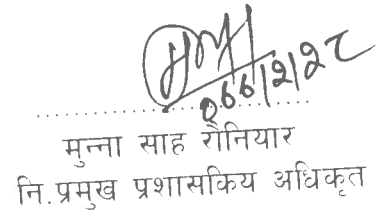 ०६६/२/२८
मुन्ना साह रौनियार
नि.प्रमुख प्रशासकिय अधिकृत